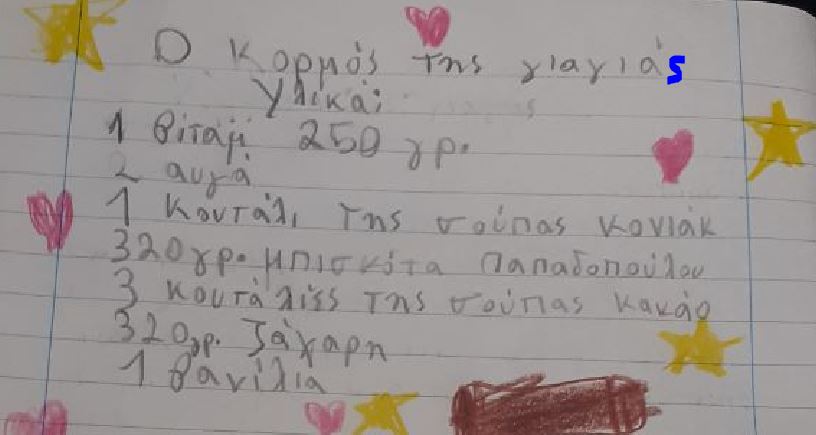 Ο κορμός της γιαγιάς
Υλικά:
1 βιτάμ 250 γρ.
2 αυγά
1 κουτάλι της σούπας κονιάκ
320γρ. μπισκότα Παπαδοπούλου
3 κουταλιές της σούπας κακάο
320γρ. ζάχαρη
1 βανίλια